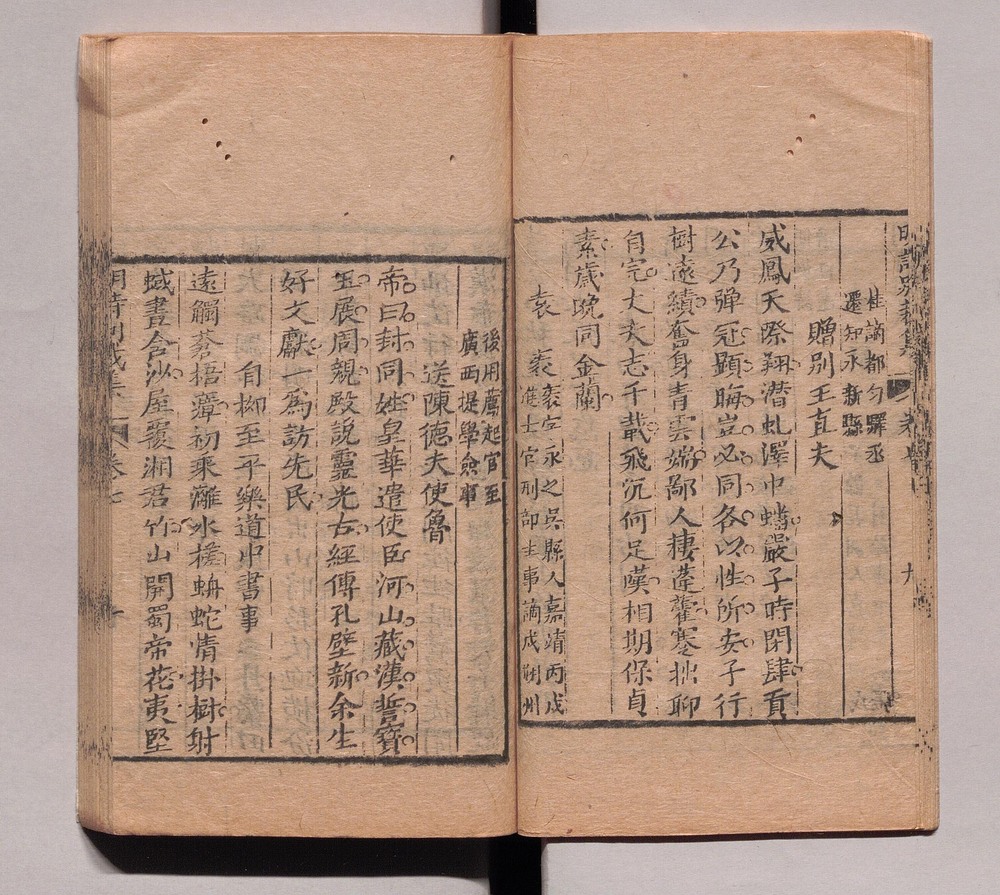 明詩別裁集 卷七 九
桂謫都勻驛丞
還知永新縣
贈別王直夫
威鳳天際翔潛虬澤中蟠嚴子時閉肆貢
公乃彈冠顯晦豈必同各以性所安子行
樹遠績奮身青雲端鄙人棲蓬藋蹇拙聊
自完丈夫志千載飛沉何足嘆相期保貞
素歲晩同金蘭
袁袠
袠字永之吳縣人嘉靖丙戌
進士官刑部主事謫戍湖州
後用薦起官至
廣西提學僉事
送陳德夫使魯
帝曰封同姓皇華遣使臣河山藏漢誓寶
玉展周親殿說靈光古經傳孔壁新余生
好文獻一為訪先民
自柳至平樂道中書事
遠觸蒼梧瘴初乘灕水槎蚺蛇情掛樹射
蜮晝含沙屋覆湘君竹山開蜀帝花夷堅
明詩別裁集 卷七 十